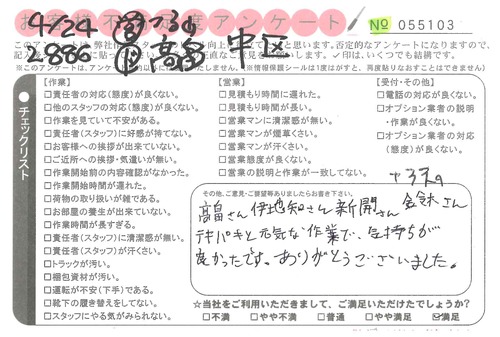 お客様不満足度アンケート
№ 055103
4/24
2,886 中区
このアンケートは、弊社
✓印は、いくつでも結構です。
※このアンケートは、
※情報保護シールは1度がすと、再度貼りなおすことはできません)
チェックリスト
【作業】
□責任者の対応(態度)が良くない。
□他のスタッフの対応(態度)が良くない。
□作業を見ていて不安がある。
□責任者(スタッフ)に好感が持てない。
□お客様への挨拶が出来ていない。
□ご近所への挨拶・気遣いが無い。
□作業開始前の内容確認がなかった。
□作業開始時間が遅れた。
□荷物の取り扱いが雑である。
□お部屋の養生が出来ていない。
□作業時間が長すぎる。
□責任者(スタッフ)に清潔感が無い。
□責任者(スタッフ)が汗くさい。
□トラックが汚い。
□梱包資材が汚い。
□運転が不安(下手)である。
□靴下の履き替えをしてない。
□スタッフにやる気がみられない。
【営業】
□見積もり時間に遅れた。
□見積もり時間が長い。
□営業マンに清潔感が無い。
□営業マンが煙草くさい。
□営業マンが汗くさい。
□営業態度が良くない。
□営業の説明と作業が一致してない。
【受付・その他】
□電話の対応が良くない。
□オプション業者の説明
・作業が良くない。
□オプション業者の対応
(態度)が良くない。
その他、ご意見・ご要望等ありましたらお書き下さい。
高畠さん 伊地知さん 新開さん 金餘さん
テキパキと元気な作業で、気持ちが
良かったです。ありがとうございました。
☆当社をご利用いただきまして、ご満足いただけたでしょうか?
□不満 □やや不満 □普通 □やや満足 ☑満足